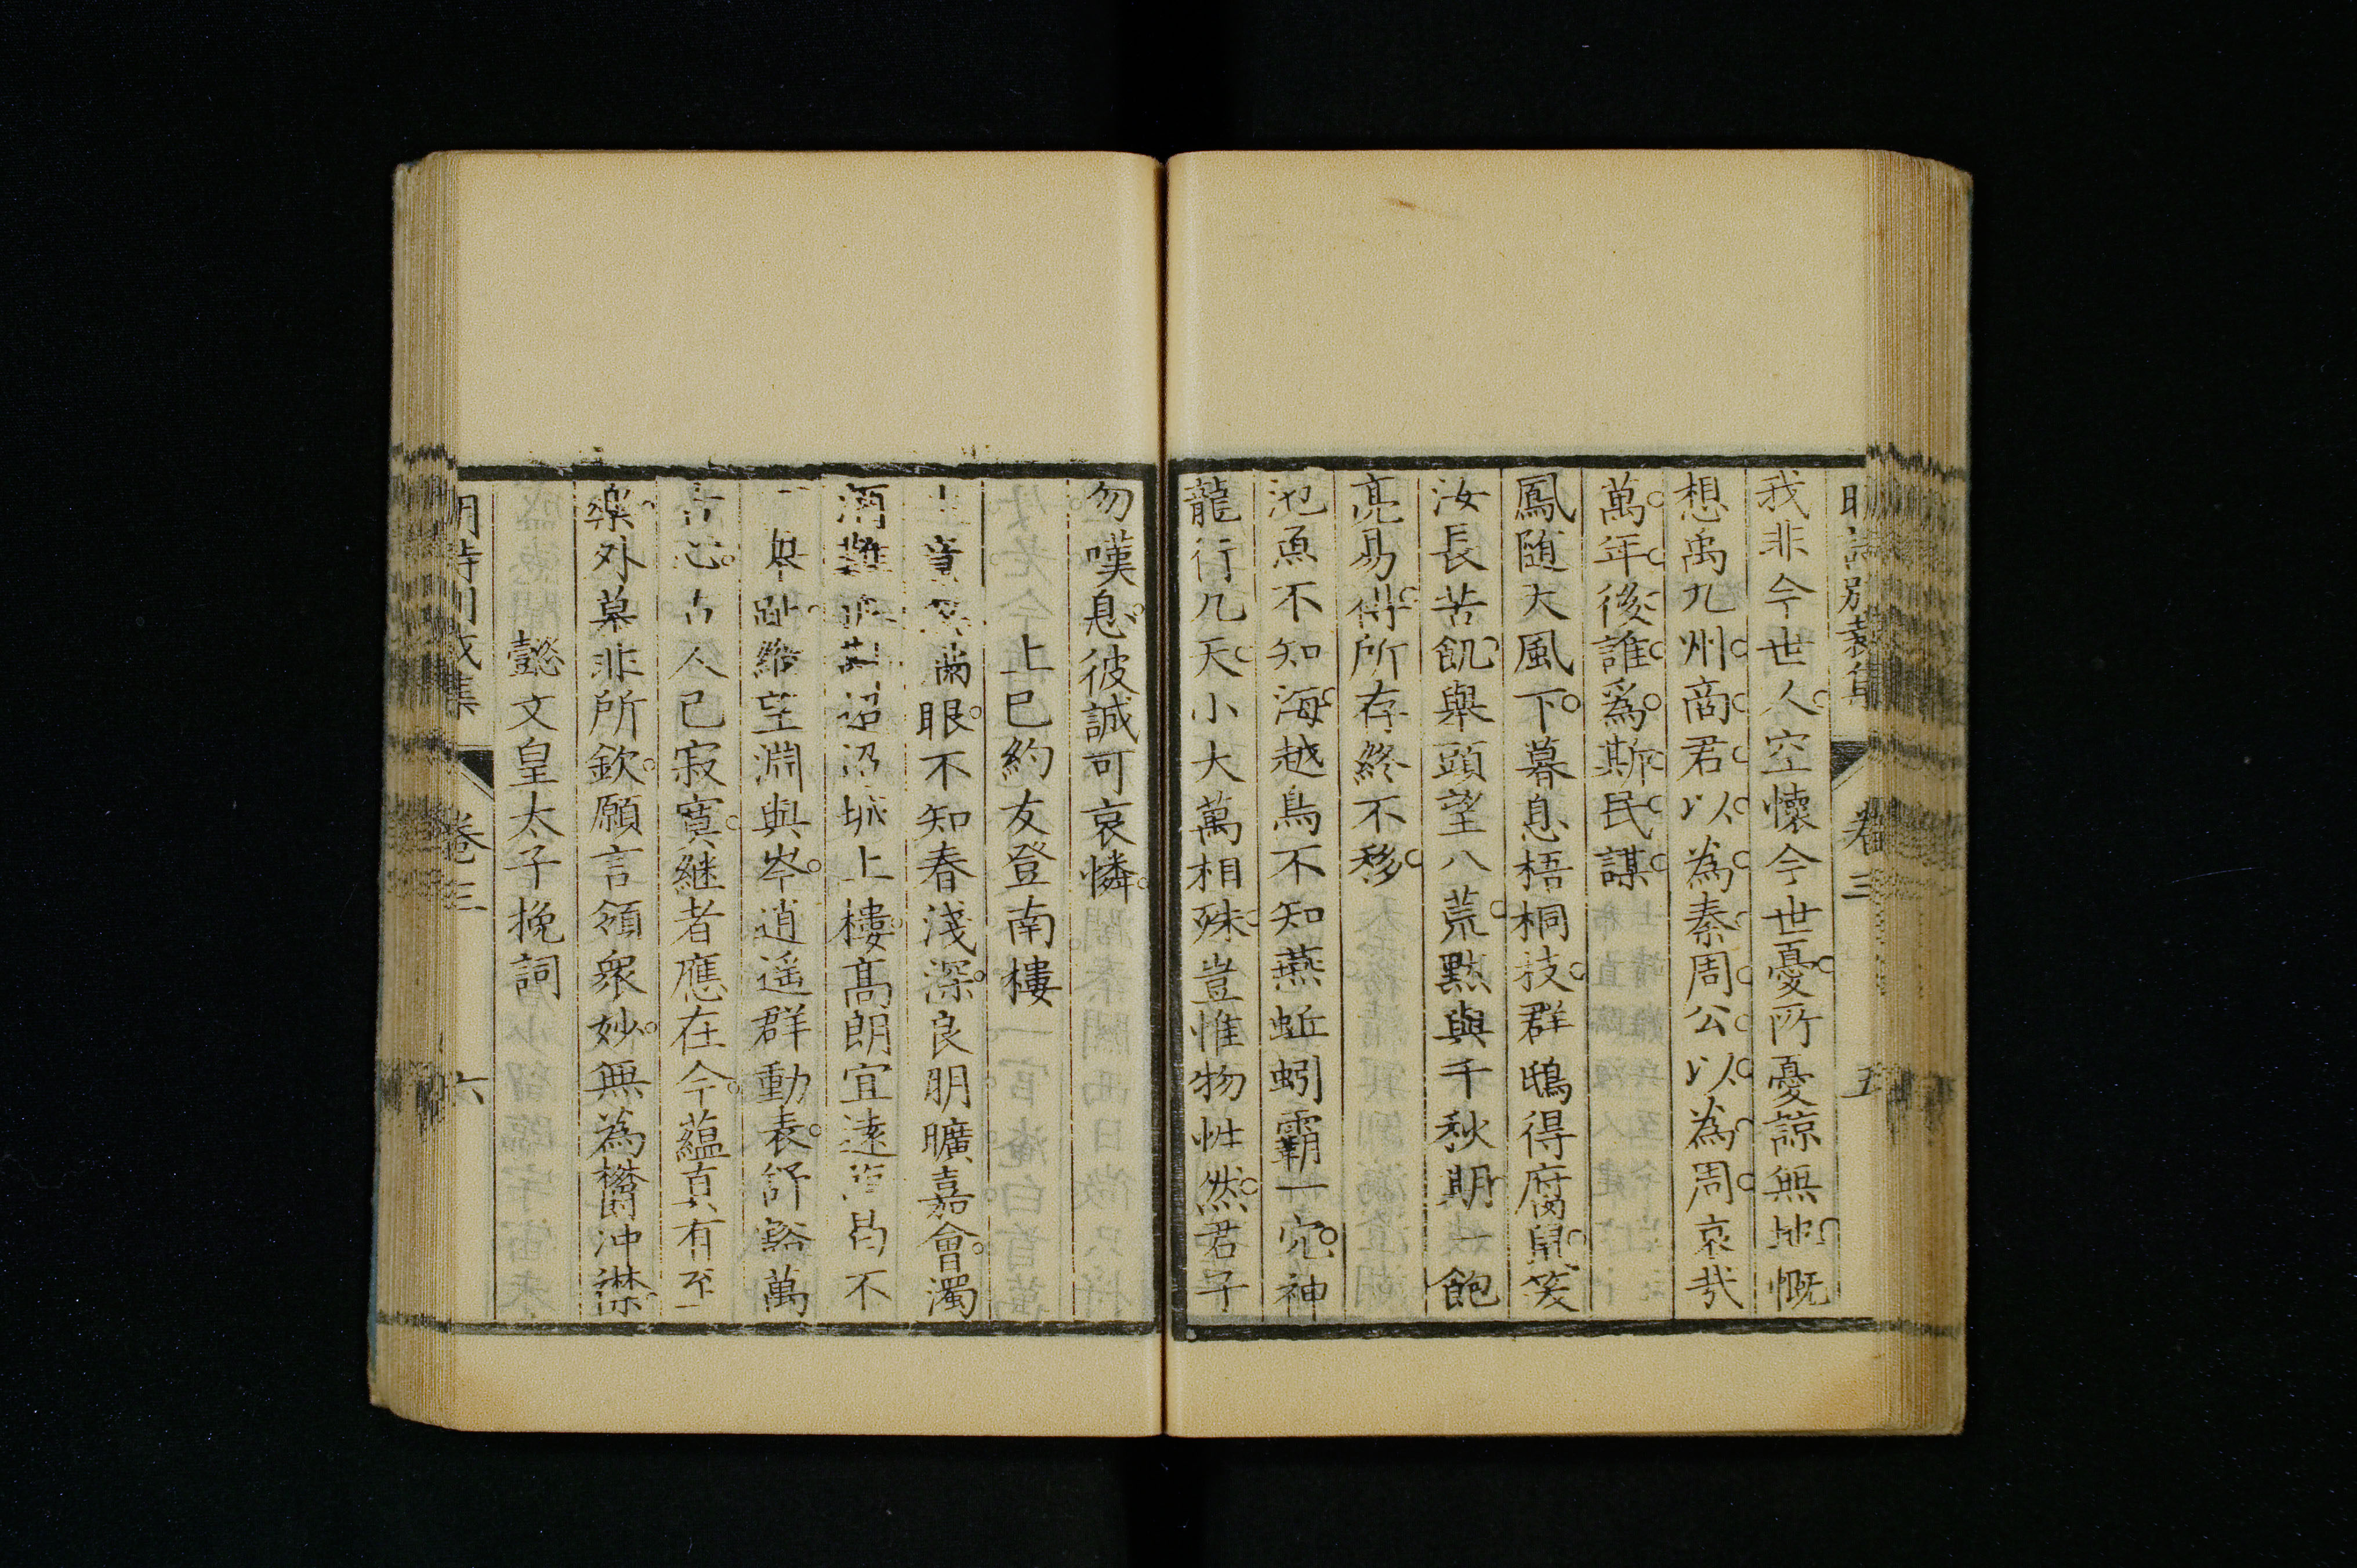 明詩別裁集 卷三 五
我非今世人空懷今世憂所憂諒無他慨
想禹九州商君以為秦周公以為周哀哉
萬年後誰爲斯民謀
鳳隨大風下暮息梧桐枝群鴟得腐鼠笑
汝長苦飢舉頭望八荒默與千秋期一飽
亮易得所存終不移
池魚不知海越鳥不知燕蚯蚓霸一穴神
龍行九天小大萬相殊豈惟物性然君子
勿嘆息彼誠可哀憐
上巳約友登南樓
眼不知春淺深良朋曠嘉會濁
酒難 沼城上樓高朗宜遠 不
趾 望淵與岑逍遥群動表舒豁萬
古心古人已寂寞継者應在今蘊真有至
樂外慕非所欽願言領衆妙無為欝冲襟
懿文皇太子挽詞
明詩別裁集 卷三 六